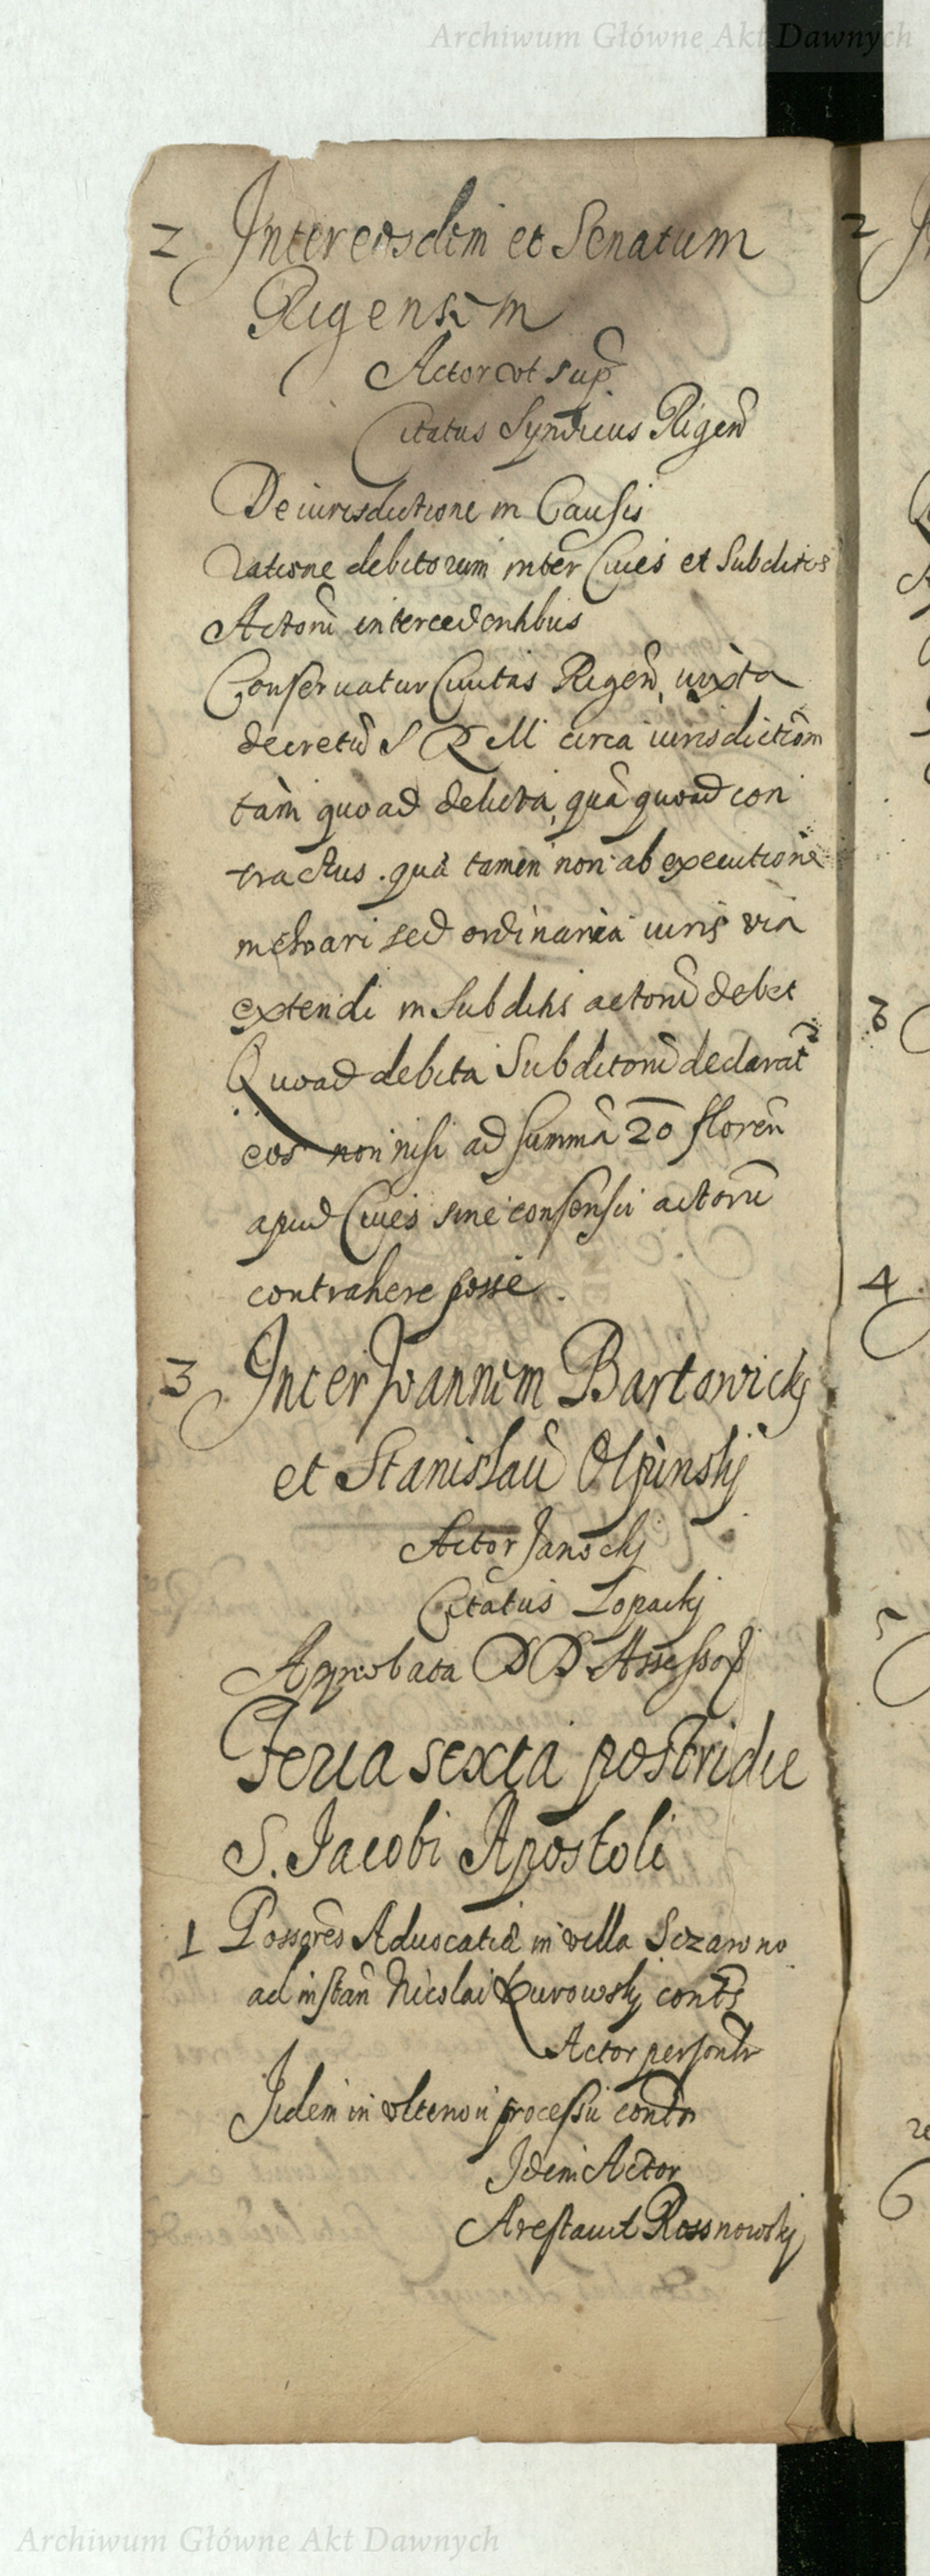 Archiwum Główne Akt Dawnych
2 Inter eosdem et Senatum
Rigensem
Actor vt sup
Citatus Syndicus Rigen
De iurisdictione in Causis
ratione debitorum inter Ciues et Subditos
Actoru intercedentibus
Conseruatur Ciuitas Rigen, iuxta
decretu S R M circa iurisdictiom
tàm quoad delicta, quà quoad con
tractus. quà tamen non ab executione
inchoari sed ordinaria iuris via
extendi in Subditis actoru debet
Quoad debita Subditoru declarat
eos non nisi ad summa 20 floren
apud Ciues sine consensu actoru
contrahere posse.
3 Inter Joannem Bartowicky
et Stanislau Olpinskj
Actor Janockj
Citatus Lopackj
Aprobata DD Assessor
Feria sexta postridie
S. Jacobi Apostoli
1 Possores Aduocatiæ in villa
ad instan Nicolai Kurowskj cont
Actor personlr
Idem in vlteriori processu cont
Idem Actor
Arestauit Rossnowskj
2
3
4
6
Archiwum Główne Akt Dawnych